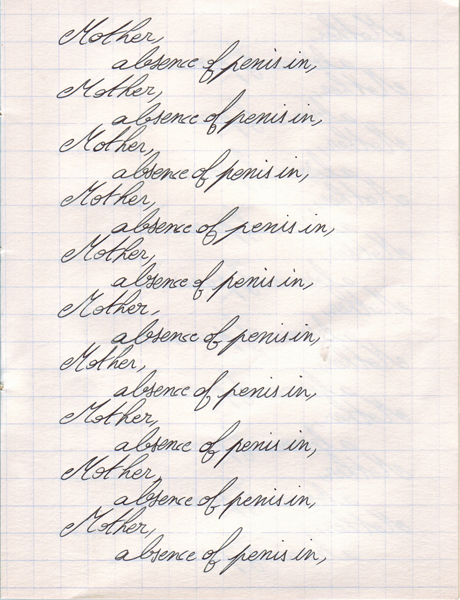 Mother,
absence of penis in,
Mother,
absence of penis in,
Mother,
absence of penis in,
Mother,
absence of penis in,
Mother,
absence of penis in,
Mother,
absence of penis in,
Mother,
absence of penis in,
Mother,
absence of penis in,
Mother,
absence of penis in,
Mother,
absence of penis in,